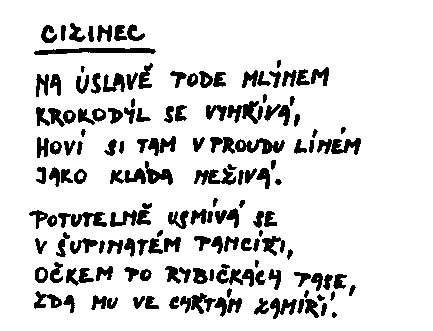 CIZINEC
NA ÚSLAVĚ PODE MLÝNEM
KROKODÝL SE VYHŘÍVÁ,
HOVÍ SI TAM V PROUDU LÍNÉM
JAKO KLÁDA NEŽIVÁ.
POTUTELNĚ USMÍVÁ SE
V ŠUPINATÉM PANCÍŘI,
OČKEM PO RYBIČKÁCH PASE,
ZDA MU VE CHŘTÁN ZAMÍŘÍ.